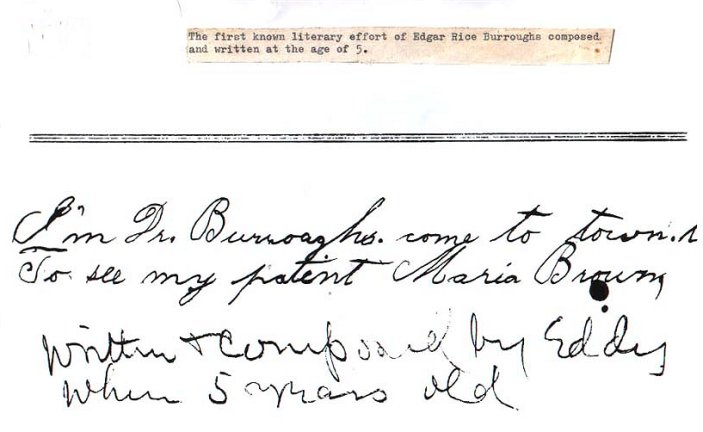 The first known literary effort of Edgar Rice Burroughs composed
and written at the age of 5.
I'm Dr. Burroughs. come to town.
To see my patent Maria Brown
written + composed by Eddy
when 5 years old